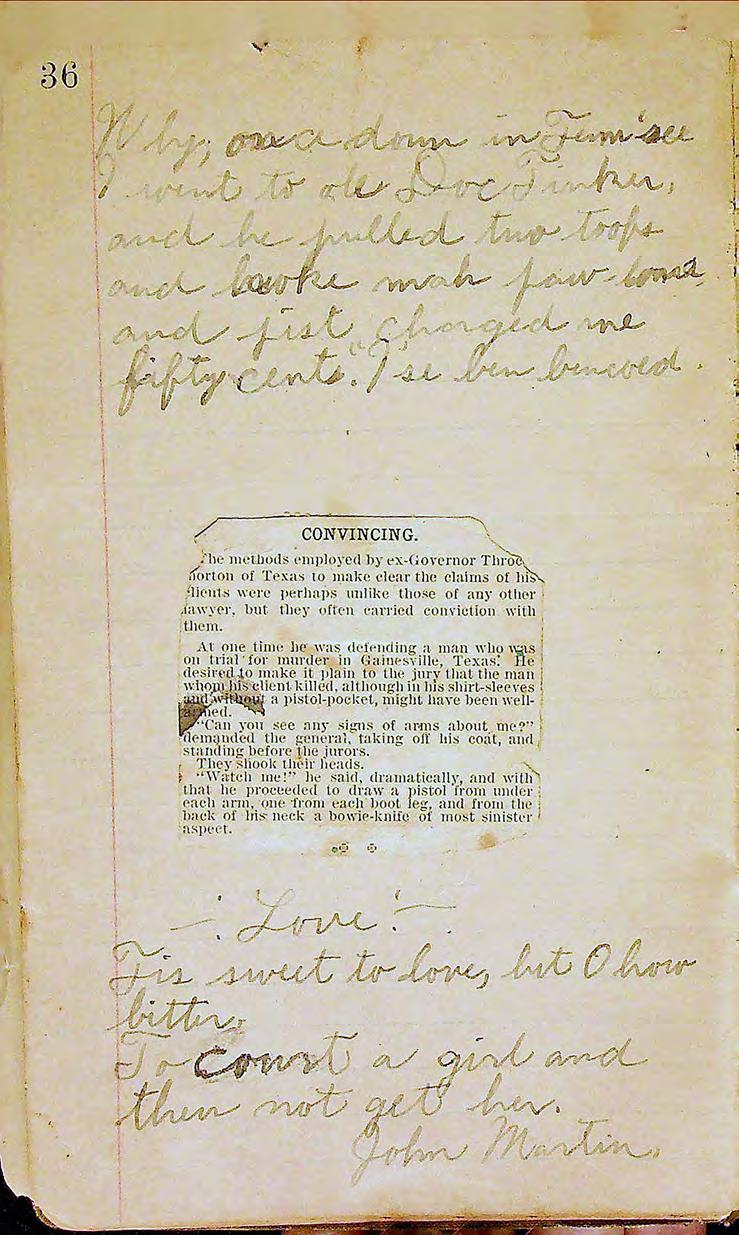 36
Why, once down in Tenn'see
I went to ole Doc Tinker,
and he pulled two toofs
and bwoke mah jaw-bone
and jist charged me
fifty cents." I'se ben
CONVINCING.
The methods employed by ex-Governor Throc
norton of Texas to make clear the claims of his
clients were perhaps unlike those of any other
lawyer, but they often carried conviction with
them.
At one time he was defending a man who was
on trial for murder in Gainesville, Texas. He
desired to make it plain to the jury that the man
whom his client killed, although in his shirt-sleeves
and without a pistol-pocket, might have been well-
armed.
"Can you see any signs of arms about me?"
demanded the general, taking off his coat, and
standing before the jurors.
They shook their heads.
"Watch me!" he said, dramatically, and with
that he proceeded to draw a pistol from under
each arm, one from each boot leg, and from the
back of his neck a bowie-knife of most sinister
aspect.
—! Love! —
Tis sweet to love, but O how
bitter,
To court a girl and
then not get her.
John Martin.